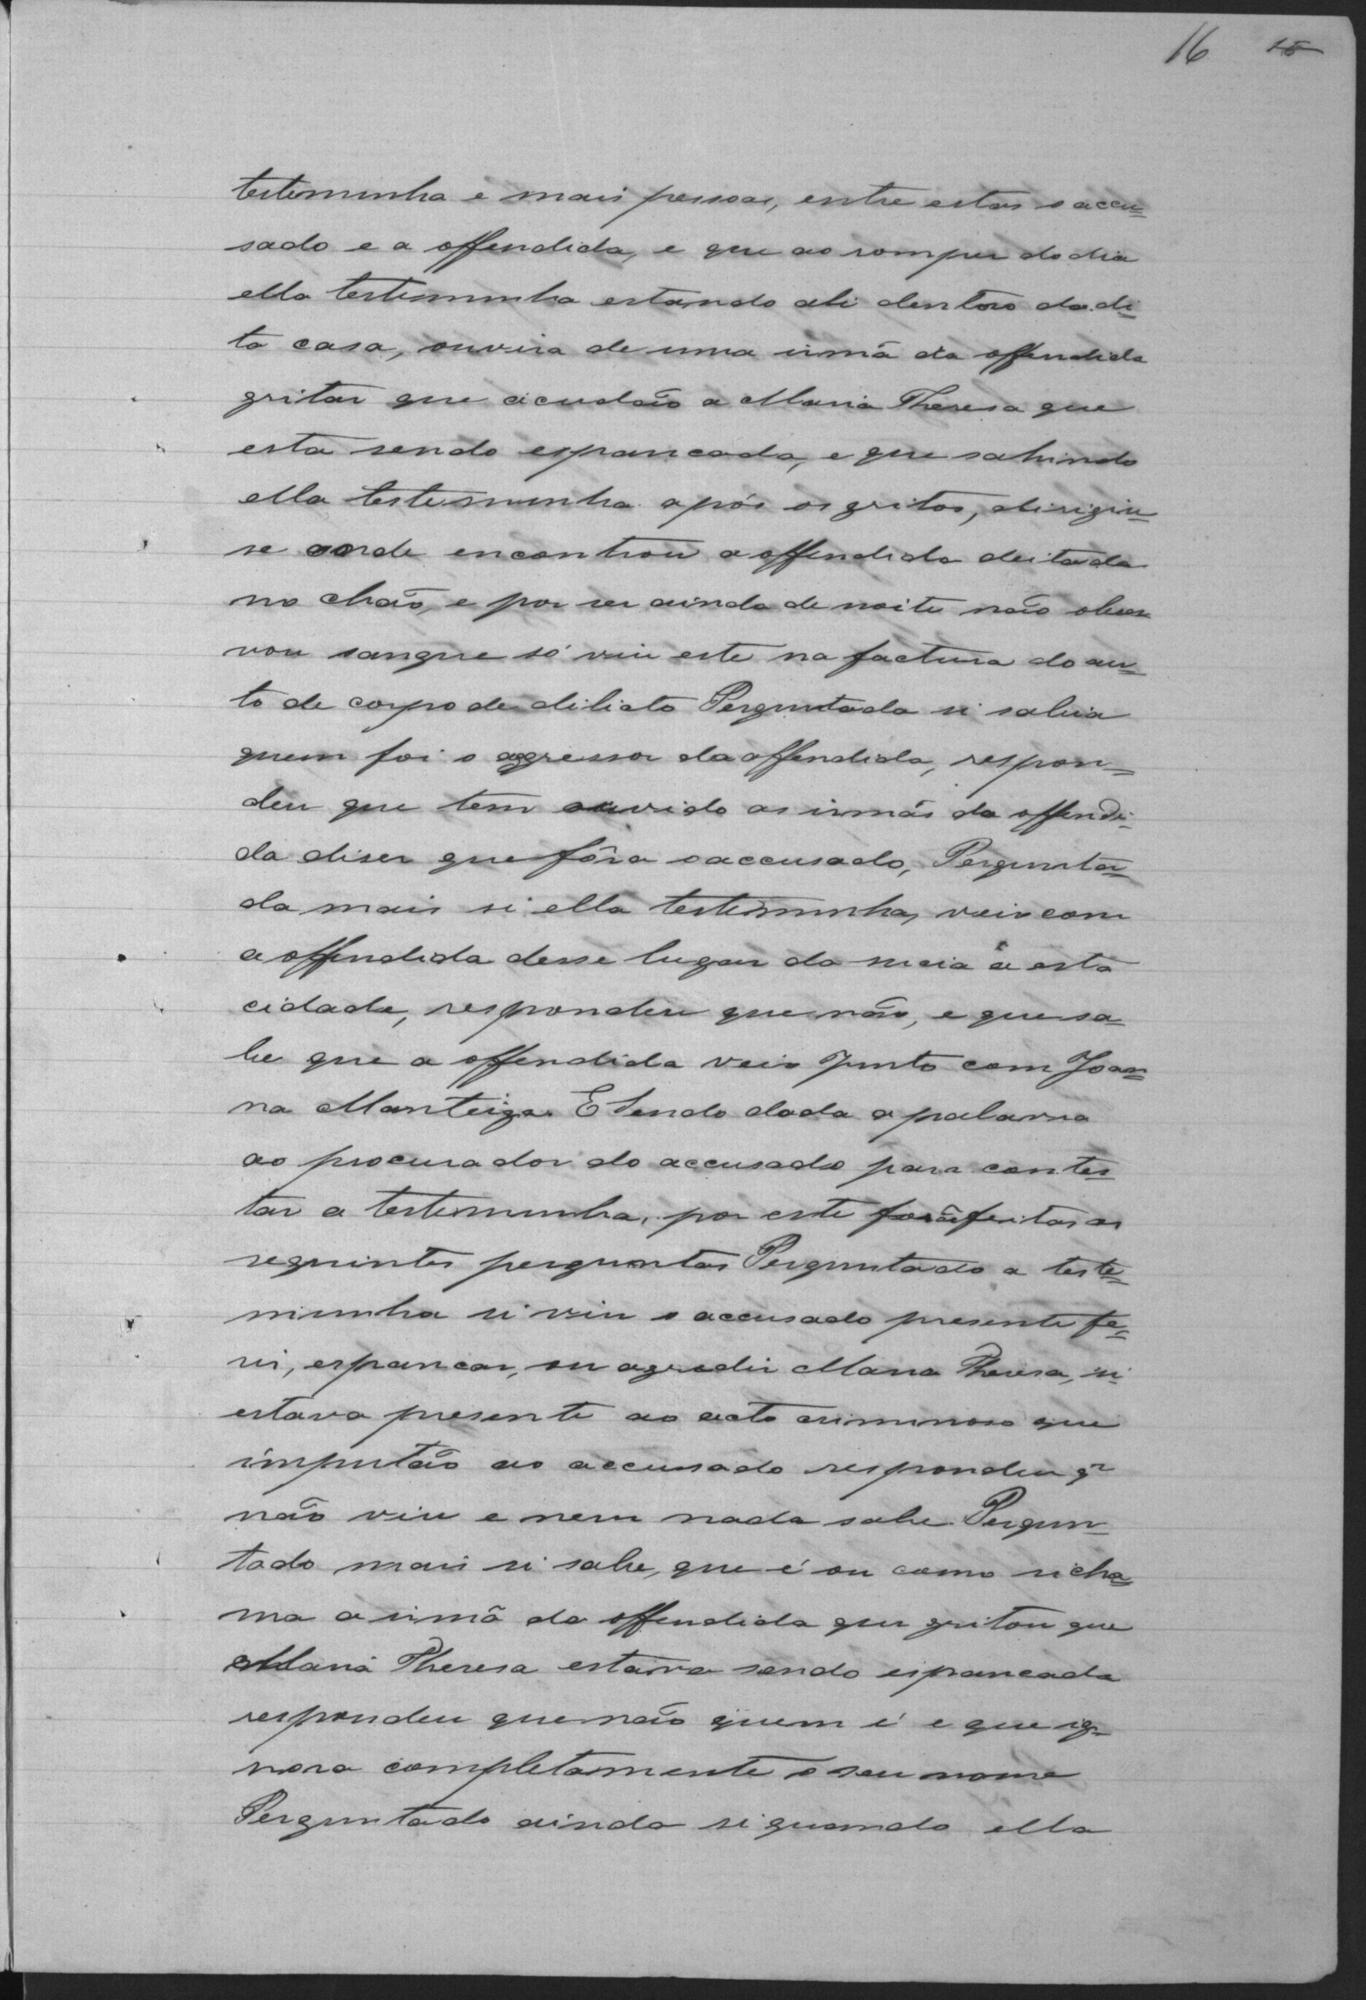 16 15
testemunha e mais pessoas, entre estas o accu-
sado e a offendida, e que ao romper do dia
ella testemunha estando ali dentro da di-
ta casa, ouvira de uma irmã da offendida
gritar que acudão a Maria Theresa que
está sendo espancada, e que sahindo
ella testemunha após os gritos, dirigiu-
se aonde encontrou a offendida deitada
no chão, e por ser ainda de noite não obser
vou sangue só viu este na factura do au-
to de corpo de dilicto Perguntada si sabia
quem foi o agressor da offendida, respon-
deu que tem ouvido as irmãs da offendi-
da diser que fôra o accusado, Pergunta-
da mais si ella testemunha, veio com
a offendida desse lugar da meia á esta
cidade, respondeu que não, e que sa-
be que a offendida veio junto com Joan-
na Manteiga. E sendo dada a palavra
ao procurador do accusado para contes-
tar a testemunha, por este forão feitas as
seguintes perguntas Perguntado a teste-
munha si viu o accusado presente fe-
rir, espancar, ou agredir Maria Theresa, si
estava presente ao acto criminoso que
imputão ao accusado respondeu qe
não viu e nem nada sabe. Pergun-
tado mais si sabe, que é ou como si cha-
ma a irmã da offendida que gritou que
Maria Theresa estava sendo espancada
respondeu que não quem é e que ig-
nora completamente o seu nome
Perguntado ainda si quando ella